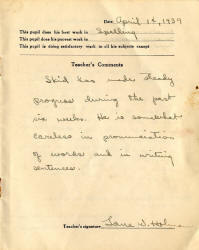 Date April 14, 1939
This pupil does his best work in Spelling
This pupil does his poorest work in
This pupil is doing satisfactory work in all his subjects except
Teacher's Comments
Skid has made steady
progress during the past
six weeks. He is somewhat
careless in pronunciation
of words and in writing
sentences.
Teacher's signature Jane D. Holm